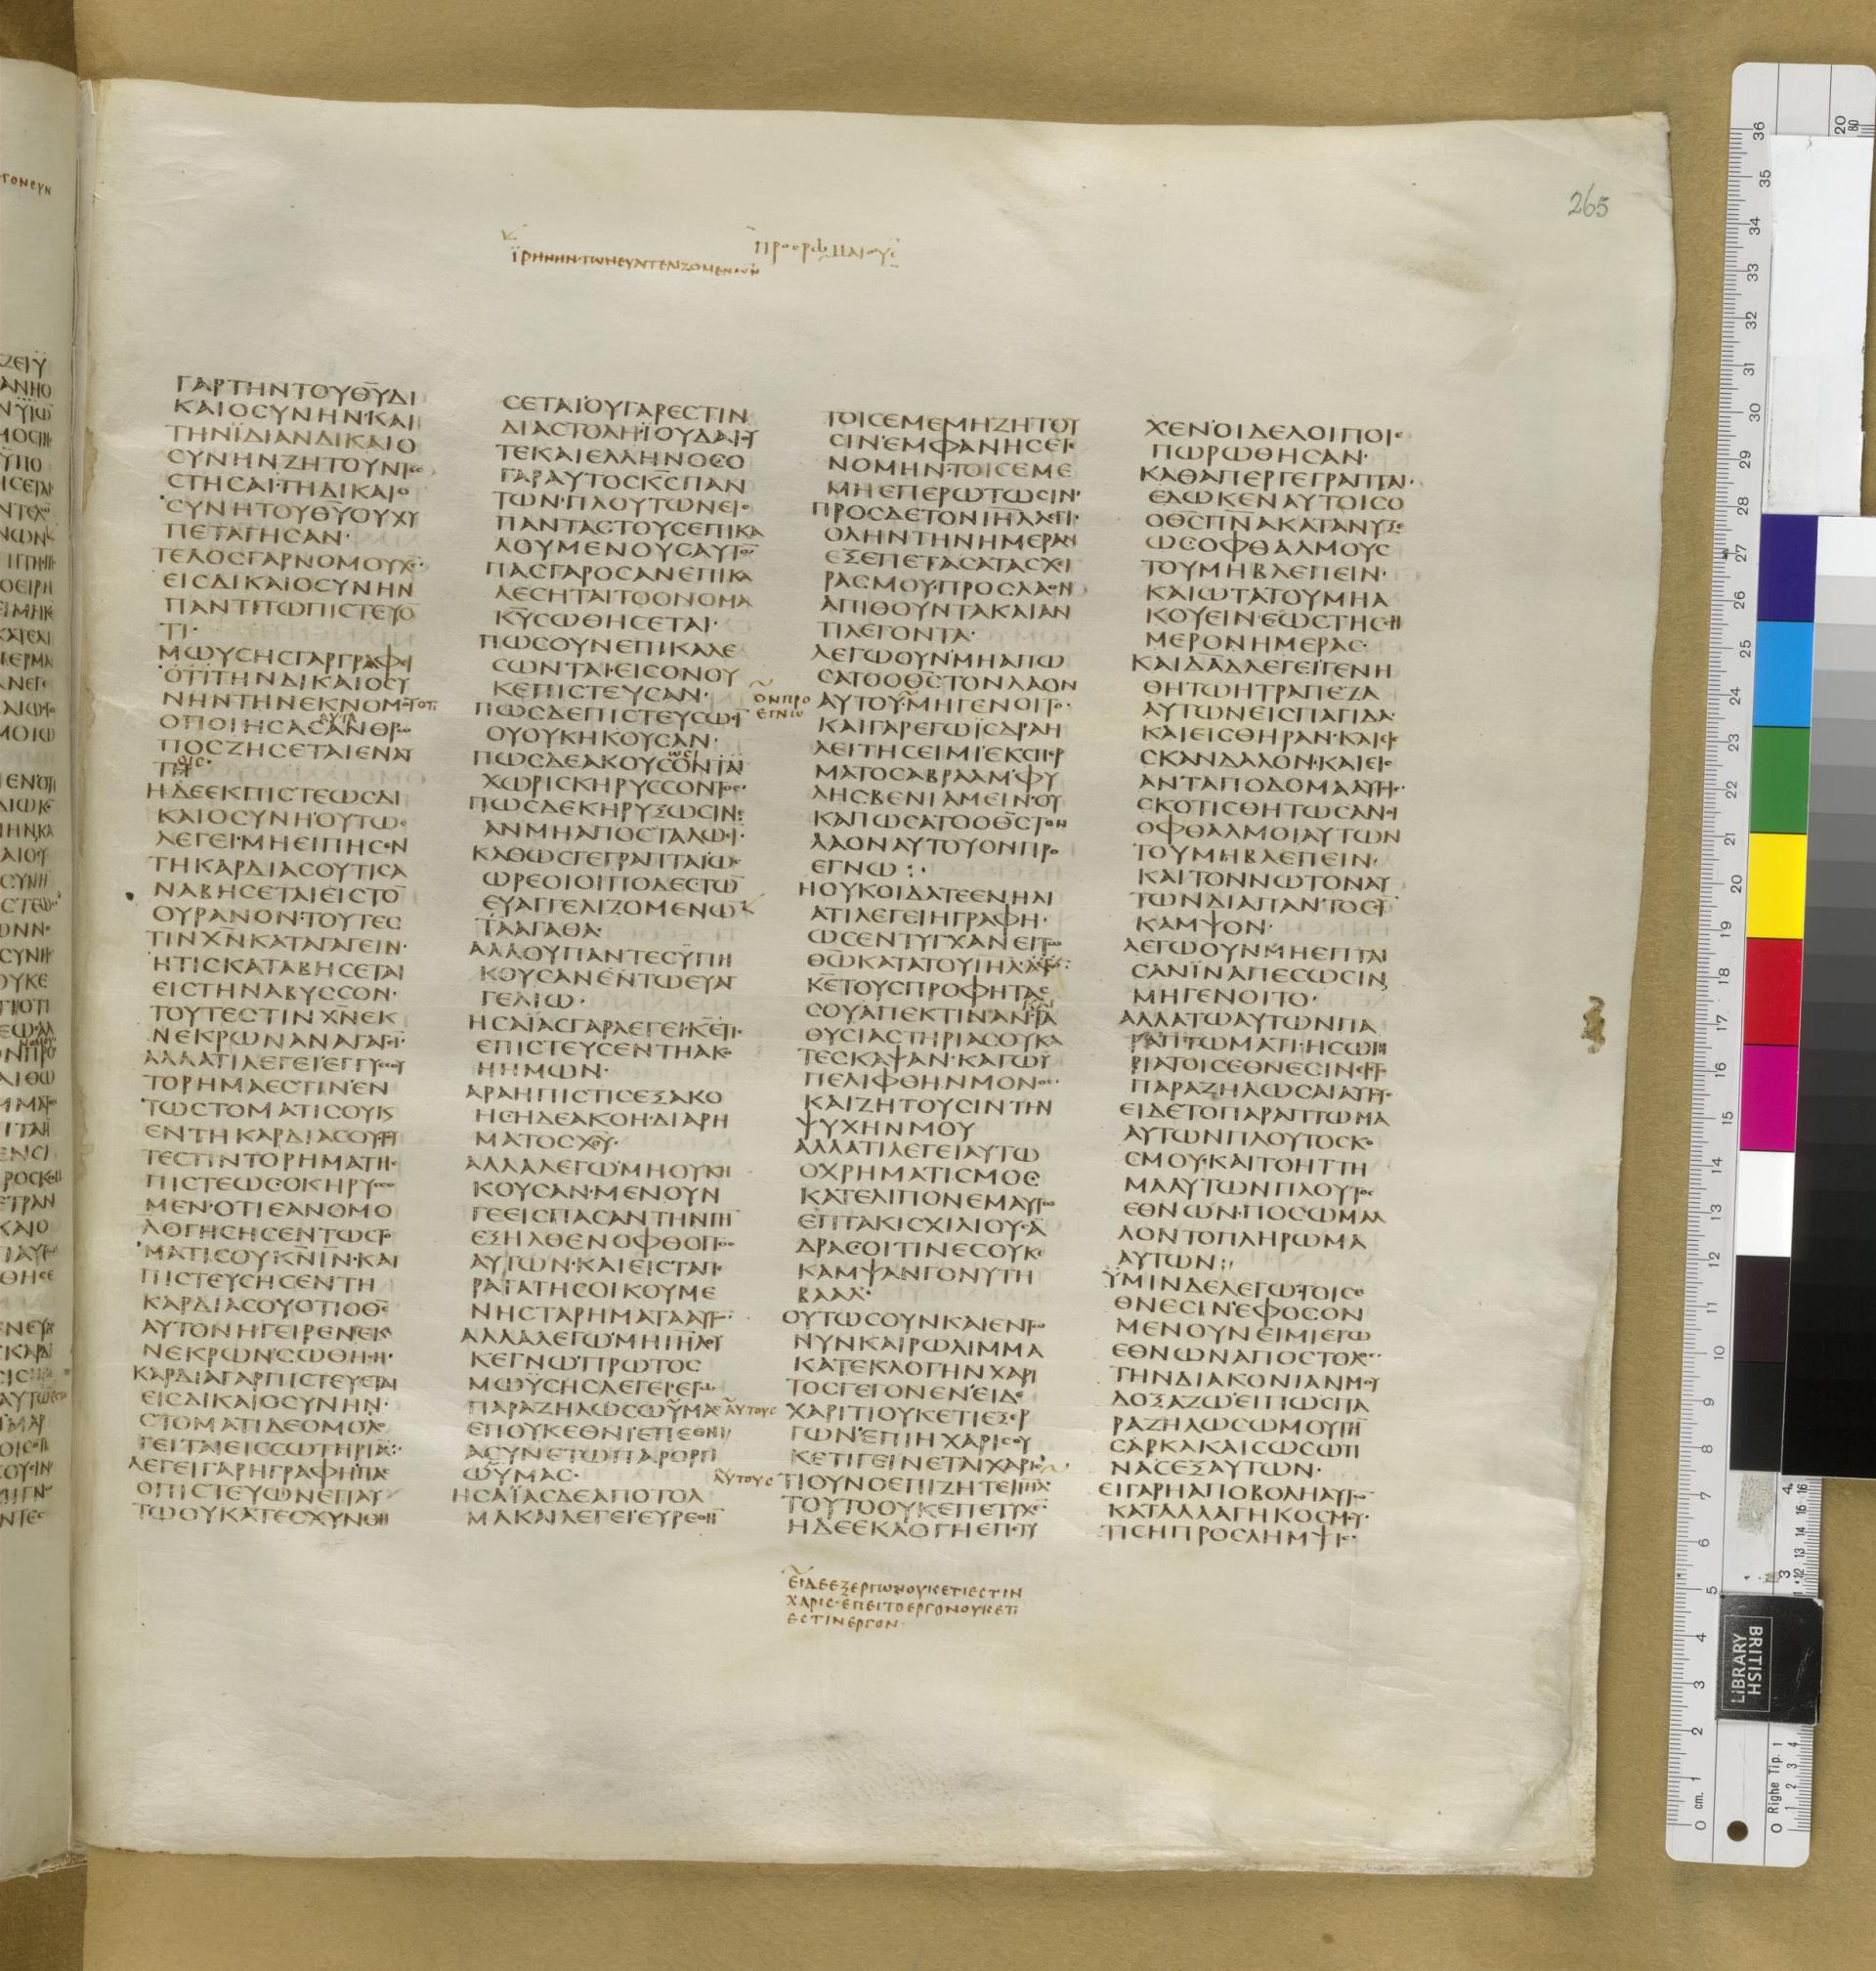 265
ΪΡΗΝΗΝ·ΤΩΝΕΥΑΓΓΕΛΙΖΟΜΕΝΩΝ
ΠΡΟϹΡΩΜΑΙΟΥϹ
ΓΑΡΤΗΝΤΟΥΘ̅Υ̅ΔΙ
ΚΑΙΟϹΥΝΗΝ·ΚΑΙ
ΤΗΝΪΔΙΑΝΔΙΚΑΙΟ
ϹΥΝΗΝΖΗΤΟΥΝΤΕϹ
ϹΤΗϹΑΙ·ΤΗΔΙΚΑΙΟ
ϹΥΝΗΤΟΥΘ̅Υ̅ΟΥΧΥ
ΠΕΤΑΓΗϹΑΝ·
ΤΕΛΟϹΓΑΡΝΟΜΟΥΧ̅Ϲ̅·
ΕΙϹΔΙΚΑΙΟϹΥΝΗΝ
ΠΑΝΤΙΤΩΠΙϹΤΕΥΟ̅
ΤΙ·
ΜΩΥϹΗϹΓΑΡΓΡΑΦΕΙ
ΟΤΙΤΗΝΔΙΚΑΙΟϹΥ
ΝΗΝΤΗΝΕΚΝΟΜΟΥΟΤΙ
ΟΠΟΙΗϹΑϹΑΥΤΑΑΝΘΡΩ
ΠΟϹΖΗϹΕΤΑΙΕΝΑΥ
ΤΗΟΙϹ·
ΗΔΕΕΚΠΙϹΤΕΩϹΔΙ
ΚΑΙΟϹΥΝΗΟΥΤΩϹ
ΛΕΓΕΙ·ΜΗΕΙΠΗϹΕΝ
ΤΗΚΑΡΔΙΑϹΟΥΤΙϹΑ
ΝΑΒΗϹΕΤΑΙΕΙϹΤΟ̅
ΟΥΡΑΝΟΝ·ΤΟΥΤΕϹ
ΤΙΝΧ̅Ν̅ΚΑΤΑΓΑΓΕΙΝ·
ΗΤΙϹΚΑΤΑΒΗϹΕΤΑΙ
ΕΙϹΤΗΝΑΒΥϹϹΟΝ·
ΤΟΥΤΕϹΤΙΝΧ̅Ν̅ΕΚ
ΝΕΚΡΩΝΑΝΑΓΑΓΕΙ·
ΑΛΛΑΤΙΛΕΓΕΙΕΓΓΥϹϹΟΥ
ΤΟΡΗΜΑΕϹΤΙΝΕΝ
ΤΩϹΤΟΜΑΤΙϹΟΥΚϹ
ΕΝΤΗΚΑΡΔΙΑϹΟΥΤΟΥ
ΤΕϹΤΙΝΤΟΡΗΜΑΤΗϹ
ΠΙϹΤΕΩϹΟΚΗΡΥϹϹΟ
ΜΕΝ·ΟΤΙΕΑΝΟΜΟ
ΛΟΓΗϹΗϹΕΝΤΩϹΤΟ
ΜΑΤΙϹΟΥΚ̅Ν̅Ι̅Ν̅·ΚΑΙ
ΠΙϹΤΕΥϹΗϹΕΝΤΗ
ΚΑΡΔΙΑϹΟΥΟΤΙΟΘ̅Ϲ̅
ΑΥΤΟΝΗΓΕΙΡΕΝΕΚ
ΝΕΚΡΩΝϹΩΘΗϹΗ·
ΚΑΡΔΙΑΓΑΡΠΙϹΤΕΥΕΤΑΙ
ΕΙϹΔΙΚΑΙΟϹΥΝΗΝ·
ϹΤΟΜΑΤΙΔΕΟΜΟΛΟ
ΓΕΙΤΑΙΕΙϹϹΩΤΗΡΙΑ̅·
ΛΕΓΕΙΓΑΡΗΓΡΑΦΗΠΑϹ
ΟΠΙϹΤΕΥΩΝΕΠΑΥ
ΤΩΟΥΚΑΤΕϹΧΥΝΘΗ
ϹΕΤΑΙΟΥΓΑΡΕϹΤΙΝ
ΔΙΑϹΤΟΛΗΪΟΥΔΑΙΟΥ
ΤΕΚΑΙΕΛΛΗΝΟϹΟ
ΓΑΡΑΥΤΟϹΚ̅Ϲ̅ΠΑΝ
ΤΩΝ·ΠΛΟΥΤΩΝΕΙϹ
ΠΑΝΤΑϹΤΟΥϹΕΠΙΚΑ
ΛΟΥΜΕΝΟΥϹΑΥΤΟΝ
ΠΑϹΓΑΡΟϹΑΝΕΠΙΚΑ
ΛΕϹΗΤΑΙΤΟΟΝΟΜΑ
Κ̅Υ̅ϹΩΘΗϹΕΤΑΙ·
ΠΩϹΟΥΝΕΠΙΚΑΛΕ
ϹΩΝΤΑΙ·ΕΙϹΟΝΟΥ
ΚΕΠΙϹΤΕΥϹΑΝ·
ΠΩϹΔΕΠΙϹΤΕΥϹΩϹΙ
ΟΥΟΥΚΗΚΟΥϹΑΝ·
ΠΩϹΔΕΑΚΟΥϹΩϹΙΟΝΤΑΙ
ΧΩΡΙϹΚΗΡΥϹϹΟΝΤΟϹ·
ΠΩϹΔΕΚΗΡΥΞΩϹΙΝ·
ΑΝΜΗΑΠΟϹΤΑΛΩϹΙ·
ΚΑΘΩϹΓΕΓΡΑΠΤΑΙΩϹ
ΩΡΕΟΙΟΙΠΟΔΕϹΤΩ̅
ΕΥΑΓΓΕΛΙΖΟΜΕΝΩ̅
ΤΑΑΓΑΘΑ·
ΑΛΛΟΥΠΑΝΤΕϹΫΠΗ
ΚΟΥϹΑΝΕΝΤΩΕΥΑΓ
ΓΕΛΙΩ·
ΗϹΑΪΑϹΓΑΡΛΕΓΕΙ·Κ̅Ε̅ΤΙϹ
ΕΠΙϹΤΕΥϹΕΝΤΗΑΚΟ
ΗΗΜΩΝ·
ΑΡΑΗΠΙϹΤΙϹΕΞΑΚΟ
ΗϹ·ΗΔΕΑΚΟΗ·ΔΙΑΡΗ
ΜΑΤΟϹΧ̅Υ̅·
ΑΛΛΑΛΕΓΩ·ΜΗΟΥΚΗ
ΚΟΥϹΑΝ·ΜΕΝΟΥΝ
ΓΕΕΙϹΠΑϹΑΝΤΗΝΓΗ̅
ΕΞΗΛΘΕΝΟΦΘΟΓΓΟϹ
ΑΥΤΩΝ·ΚΑΙΕΙϹΤΑΠΕ
ΡΑΤΑΤΗϹΟΙΚΟΥΜΕ
ΝΗϹΤΑΡΗΜΑΤΑΑΥΤΩ̅·
ΑΛΛΑΛΕΓΩ·ΜΗΙ̅Η̅Λ̅ΟΥ
ΚΕΓΝΩΠΡΩΤΟϹ
ΜΩΫϹΗϹΛΕΓΕΙ·ΕΓΩ
ΠΑΡΑΖΗΛΩϹΩΫΜΑϹ ΑΥΤΟΥϹ
ΕΠΟΥΚΕΘΝΙΕΠΕΘΝΙ
ΑϹΥΝΕΤΩΠΑΡΟΡΓΙ
ΩΫΜΑϹ· ΑΥΤΟΥϹ
ΗϹΑΪΑϹΔΕΑΠΟΤΟΛ
ΜΑΚΑΙΛΕΓΕΙ·ΕΥΡΕΘΗ̅
ΤΟΙϹΕΜΕΜΗΖΗΤΟΥ
ϹΙΝ·ΕΜΦΑΝΗϹΕΓΕ
ΝΟΜΗΝ·ΤΟΙϹΕΜΕ
ΜΗΕΠΕΡΩΤΩϹΙΝ·
ΠΡΟϹΔΕΤΟΝΙ̅Η̅Λ̅ΛΕΓΕΙ·
ΟΛΗΝΤΗΝΗΜΕΡΑΝ
ΕΞΕΠΕΤΑϹΑΤΑϹΧΕΙ
ΡΑϹΜΟΥ·ΠΡΟϹΛΑΟΝ
ΑΠΙΘΟΥΝΤΑΚΑΙΑΝ
ΤΙΛΕΓΟΝΤΑ·
ΛΕΓΩΟΥΝ·ΜΗΑΠΩ
ϹΑΤΟΟΘ̅Ϲ̅ΤΟΝΛΑΟΝ
ΟΝΠΡΟ
ΕΓΝΩ
ΑΥΤΟΥ·ΜΗΓΕΝΟΙΤΟ·
ΚΑΙΓΑΡΕΓΩΪϹΔΡΑΗ
ΛΕΙΤΗϹΕΙΜΙ·ΕΚϹΠΕΡ
ΜΑΤΟϹΑΒΡΑΑΜ·ΦΥ
ΛΗϹΒΕΝΙΑΜΕΙΝ·ΟΥ
ΚΑΠΩϹΑΤΟΟΘ̅Ϲ̅ΤΟΝ
ΛΑΟΝΑΥΤΟΥΟΝΠΡΟ
ΕΓΝΩ:·
ΗΟΥΚΟΙΔΑΤΕΕΝΗΛΙ
ΑΤΙΛΕΓΕΙΗΓΡΑΦΗ·
ΩϹΕΝΤΥΓΧΑΝΕΙΤΩ
Θ̅Ω̅ΚΑΤΑΤΟΥΙ̅Η̅Λ̅ΛΕΓΩ̅·
Κ̅Ε̅ΤΟΥϹΠΡΟΦΗΤΑϹ
ϹΟΥΑΠΕΚΤΙΝΑΝ·ΤΑ
ΘΥϹΙΑϹΤΗΡΙΑϹΟΥΚΑ
ΤΕϹΚΑΨΑΝ·ΚΑΓΩΫ
ΠΕΛΙΦΘΗΝΜΟΝΟϹ·
ΚΑΙΖΗΤΟΥϹΙΝΤΗΝ
ΨΥΧΗΝΜΟΥ
ΑΛΛΑΤΙΛΕΓΕΙΑΥΤΩ
ΟΧΡΗΜΑΤΙϹΜΟϹ
ΚΑΤΕΛΙΠΟΝΕΜΑΥΤΩ
ΕΠΤΑΚΙϹΧΙΛΙΟΥϹΑ̅
ΔΡΑϹΟΙΤΙΝΕϹΟΥΚΕ
ΚΑΜΨΑΝΓΟΝΥΤΗ
ΒΑΑΛ·
ΟΥΤΩϹΟΥΝΚΑΙΕΝΤΩ
ΝΥΝΚΑΙΡΩΛΙΜΜΑ
ΚΑΤΕΚΛΟΓΗΝΧΑΡΙ
ΤΟϹΓΕΓΟΝΕΝΕΙΔΕ
ΧΑΡΙΤΙΟΥΚΕΤΙΕΞΕΡ
ΓΩΝΕΠΙΗΧΑΡΙϹΟΥ
ΚΕΤΙΓΕΙΝΕΤΑΙΧΑΡΙϹ
ΤΙΟΥΝΟΕΠΙΖΗΤΕΙΙ̅Η̅Λ̅
ΤΟΥΤΟΟΥΚΕΠΕΤΥΧΕ̅·
ΗΔΕΕΚΛΟΓΗΕΠΕΤΥ
ΕΙΔΕΕΞΕΡΓΩΝΟΥΚΕΤΙΕϹΤΙΝ
ΧΑΡΙϹ·ΕΠΕΙΤΟΕΡΓΟΝΟΥΚΕΤΙ
ΕϹΤΙΝΕΡΓΟΝ·
ΧΕΝ·ΟΙΔΕΛΟΙΠΟΙΕ
ΠΩΡΩΘΗϹΑΝ·
ΚΑΘΑΠΕΡΓΕΓΡΑΠΤΑΙ·
ΕΔΩΚΕΝΑΥΤΟΙϹΟ
ΟΘ̅Ϲ̅Π̅Ν̅ΑΚΑΤΑΝΥΞΕ
ΩϹ·ΟΦΘΑΛΜΟΥϹ
ΤΟΥΜΗΒΛΕΠΕΙΝ·
ΚΑΙΩΤΑΤΟΥΜΗΑ
ΚΟΥΕΙΝ·ΕΩϹΤΗϹϹΗ
ΜΕΡΟΝΗΜΕΡΑϹ·
ΚΑΙΔΑΔΛΕΓΕΙΓΕΝΗ
ΘΗΤΩΗΤΡΑΠΕΖΑ
ΑΥΤΩΝΕΙϹΠΑΓΙΔΑ·
ΚΑΙΕΙϹΘΗΡΑΝ·ΚΑΙΕΙϹ
ϹΚΑΝΔΑΛΟΝ·ΚΑΙΕΙϹ
ΑΝΤΑΠΟΔΟΜΑΑΥΤΟΙϹ·
ϹΚΟΤΙϹΘΗΤΩϹΑΝΟΙ
ΟΦΘΑΛΜΟΙΑΥΤΩΝ
ΤΟΥΜΗΒΛΕΠΕΙΝ·
ΚΑΙΤΟΝΝΩΤΟΝΑΥ
ΤΩΝΔΙΑΠΑΝΤΟϹϹΥ̅
ΚΑΜΨΟΝ·
ΛΕΓΩΟΥΝ·ΜΗΕΠΤΑΙ
ϹΑΝΪΝΑΠΕϹΩϹΙΝ
ΜΗΓΕΝΟΙΤΟ·
ΑΛΛΑΤΩΑΥΤΩΝΠΑ
ΡΑΠΤΩΜΑΤΙ·ΗϹΩΤΗ
ΡΙΑΤΟΙϹΕΘΝΕϹΙΝ·ΕΙϹΤΟ
ΠΑΡΑΖΗΛΩϹΑΙΑΥΤΟΥϹ·
ΕΙΔΕΤΟΠΑΡΑΠΤΩΜΑ
ΑΥΤΩΝΠΛΟΥΤΟϹΚΟ
ϹΜΟΥ·ΚΑΙΤΟΗΤΤΗ
ΜΑΑΥΤΩΝΠΛΟΥΤΟϹ
ΕΘΝΩΝ·ΠΟϹΩΜΑΛ
ΛΟΝΤΟΠΛΗΡΩΜΑ
ΑΥΤΩΝ:
ΫΜΙΝΔΕΛΕΓΩ·ΤΟΙϹΕ
ΘΝΕϹΙΝ·ΕΦΟϹΟΝ
ΜΕΝΟΥΝΕΙΜΙΕΓΩ
ΕΘΝΩΝΑΠΟϹΤΟΛΟϹ·
ΤΗΝΔΙΑΚΟΝΙΑΝΜΟΥ
ΔΟΞΑΖΩ·ΕΙΠΩϹΠΑ
ΡΑΖΗΛΩϹΩΜΟΥΤΗ̅
ϹΑΡΚΑΚΑΙϹΩϹΩΤΙ
ΝΑϹΕΞΑΥΤΩΝ·
ΕΙΓΑΡΗΑΠΟΒΟΛΗΑΥΤΩ̅
ΚΑΤΑΛΛΑΓΗΚΟϹΜΟΥ·
ΤΙϹΗΠΡΟϹΛΗΜΨΙϹ·
BRITISH
LIBRARY
0 cm.
0 Righe Tip.